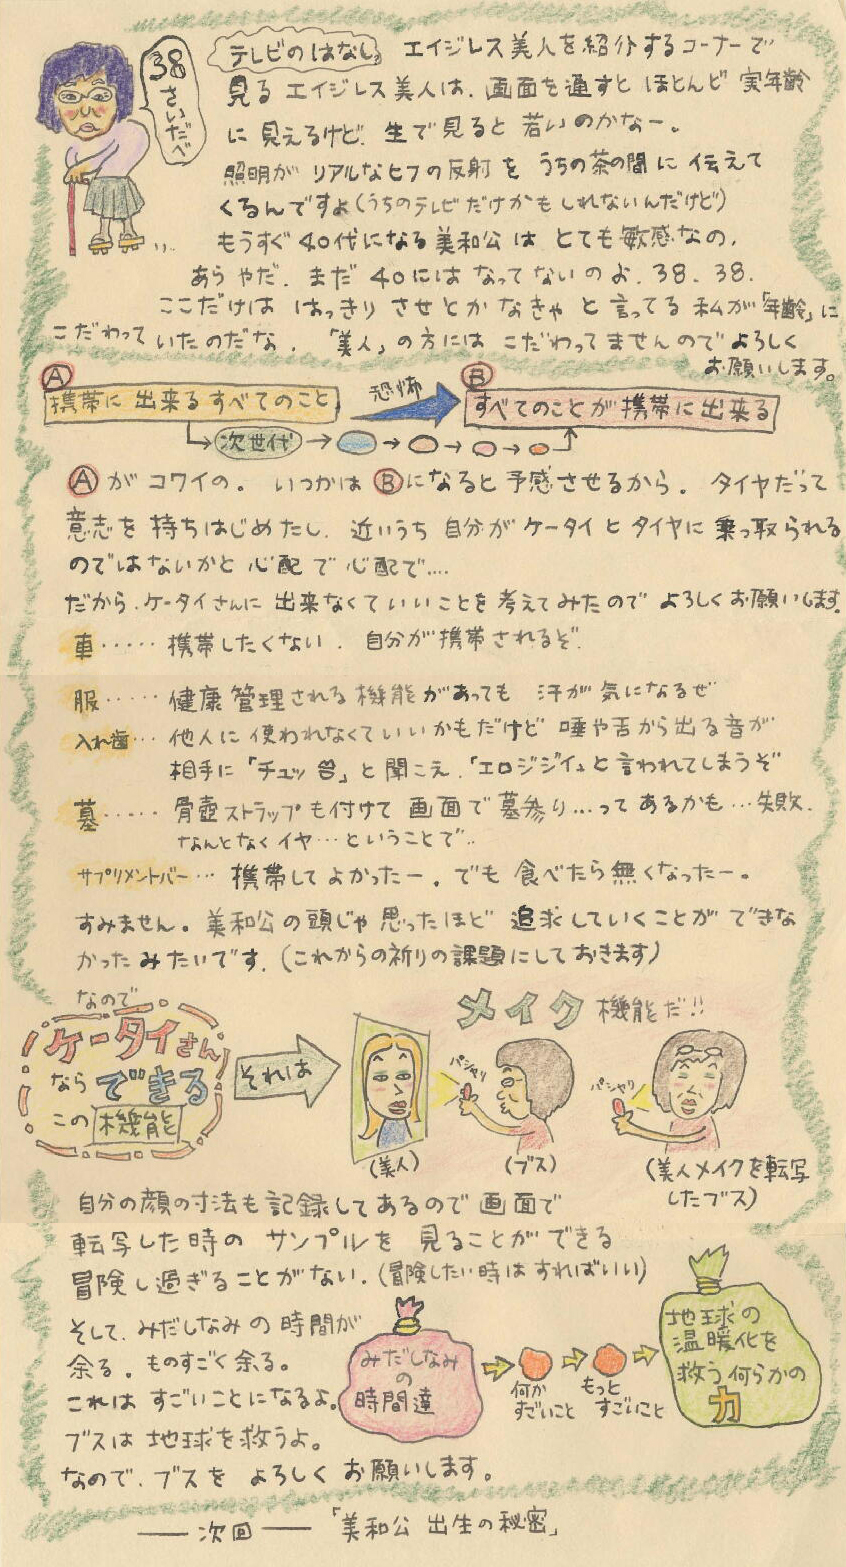 38さいだべ
テレビのはなし。 エイジレス美人を紹介するコーナーで
見る エイジレス美人は、画面を通すと ほとんど 実年齢
に 見えるけど、生で見ると 若いのかなー。
照明が リアルなヒフの反射を うちの茶の間に 伝えて
くるんですよ(うちのテレビだけかもしれないんだけど)
もうすぐ 40代になる美和公は とても敏感なの。
あらやだ、まだ 40には なってないのよ、38、38。
ここだけは はっきり させとかなきゃ と 言ってる 私が「年齢」に
こだわって いたのだな。「美人」の方には こだわってませんので よろしく
お願いします。
A
携帯に 出来るすべてのこと
恐怖
B
すべてのことが 携帯に出来る
次世代
Aが コワイの。 いつかは Bになると 予感させるから。 タイヤだって
意志を 持ちはじめたし、近いうち 自分が ケータイ と タイヤに 乗っ取られる
のではないかと 心配で 心配で‥‥
だから、ケータイさんに 出来なくていいことを 考えてみたので よろしくお願いします。
車‥‥‥ 携帯したくない。 自分が携帯されるぞ。
服‥‥‥ 健康管理される機能があっても 汗が気になるぜ
入れ歯‥‥ 他人に 使われなくていいかもだけど 唾や舌から出る音が
相手に「チュッ」と聞こえ、「エロジジイ」と言われてしまうぞ
墓‥‥‥ 骨壺ストラップも付けて 画面で墓参り‥‥って あるかも‥‥失敗。
なんとなくイヤ‥‥ということで‥
サプリメントバー‥‥ 携帯して よかったー。でも 食べたら無くなったー。
すみません。美和公の頭じゃ 思ったほど 追求していくことが できな
かった みたいです。(これからの祈りの課題にしておきます)
なので
ケータイさん
なら できる
この 機能
それは
メイク 機能だ!!
パシャリ
パシャリ
(美人)
(ブス)
(美人メイクを転写
したブス)
自分の顔の寸法も記録してあるので 画面で
転写した時の サンプルを 見ることができる
冒険し過ぎることがない。(冒険したい時は すればいい)
そして、みだしなみの時間が
余る。ものすごく余る。
これは すごいことになるよ。
ブスは 地球を救うよ。
なので、ブスを よろしく お願いします。
みだしなみ
の
時間達
何か
すごいこと
もっと
すごいこと
地球の
温暖化を
救う何らかの
力
── 次回 ── 「美和公 出生の秘密」